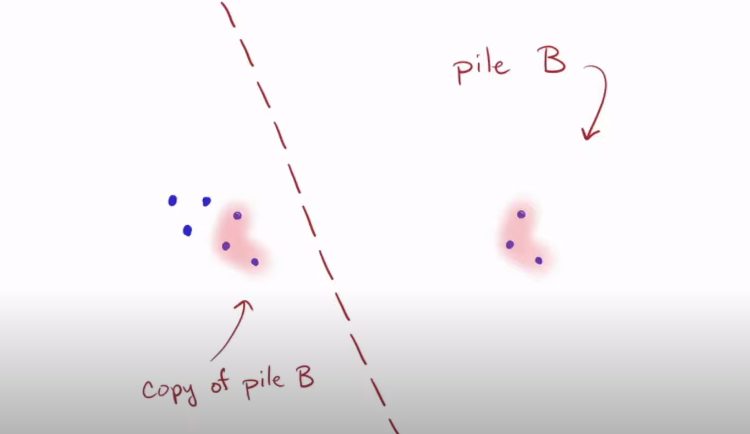 pile B
copy of pile B